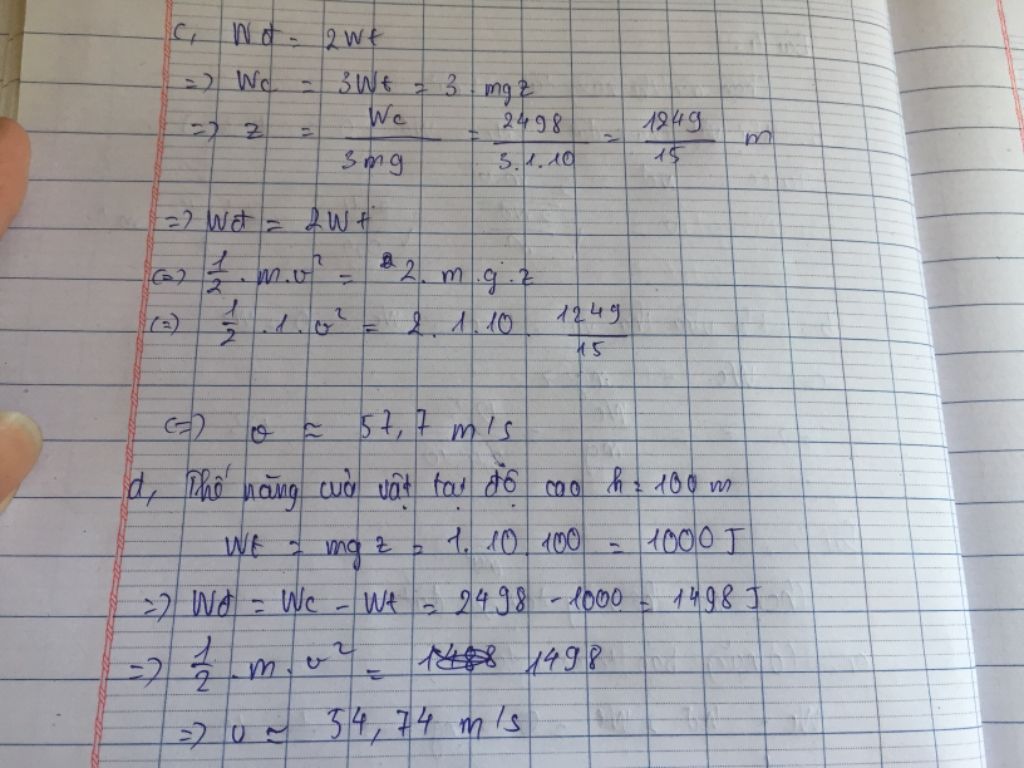 c, Wđ = 2Wt
=> Wc = 3Wt = 3 mgz
=> z = Wc / 3mg = 2498 / 3.1.10 = 1249 / 15 m
=> Wđ = 2Wt
<=> 1/2 . m.v² = 2. m.g.z
<=> 1/2 .1.v² = 2.1.10. 1249 / 15
<=> v ≈ 57,7 m/s
d, Thế năng của vật tại độ cao h = 100 m
Wt = mgz = 1.10.100 = 1000 J
=> Wđ = Wc - Wt = 2498 - 1000 = 1498 J
=> 1/2 . m.v² = 1498
=> v ≈ 54,74 m/s